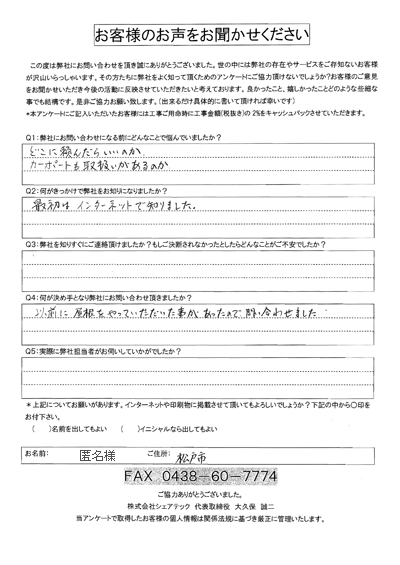 お客様のお声をお聞かせください
この度は弊社にお問い合わせを頂き誠にありがとうございました。世の中には弊社の存在やサービスをご存知ないお客様
が沢山いらっしゃいます。その方たちに弊社をよく知って頂くためのアンケートにご協力頂けないでしょうか?お客様のご意見
をお聞かせいただき今後の活動に反映させていただきたいと考えております。良かったこと、嬉しかったことどのような些細な
事でも結構です。是非ご協力お願い致します。(出来るだけ具体的に書いて頂ければ幸いです)
*本アンケートにご記入いただいたお客様には工事ご用命時に工事金額(税抜き)の2%をキャッシュバックさせていただきます。
Q1:弊社にお問い合わせになる前にどんなことで悩んでいましたか?
どこに頼んだらいいのか
カーポートも取扱いがあるのか
Q2:何がきっかけで弊社をお知りになりましたか?
最初はインターネットで知りました。
Q3:弊社を知りすぐにご連絡頂けましたか?もしご決断されなかったとしたらどんなことがご不安でしたか?
Q4:何が決め手となり弊社にお問い合わせ頂きましたか?
以前に屋根をやっていただいた事があったので問い合わせました
Q5:実際に弊社担当者がお伺いしていかがでしたか?
*上記についてお願いがあります。インターネットや印刷物に掲載させて頂いてもよろしいでしょうか?下記の中から〇印を
お付下さい。
( )名前を出してもよい ( )イニシャルなら出してもよい
お名前: 匿名様 ご住所: 松戸市
FAX 0438-60-7774
ご協力ありがとうございました。
株式会社シェアテック 代表取締役 大久保 誠二
当アンケートで取得したお客様の個人情報は関係法規に基づき厳正に管理いたします。